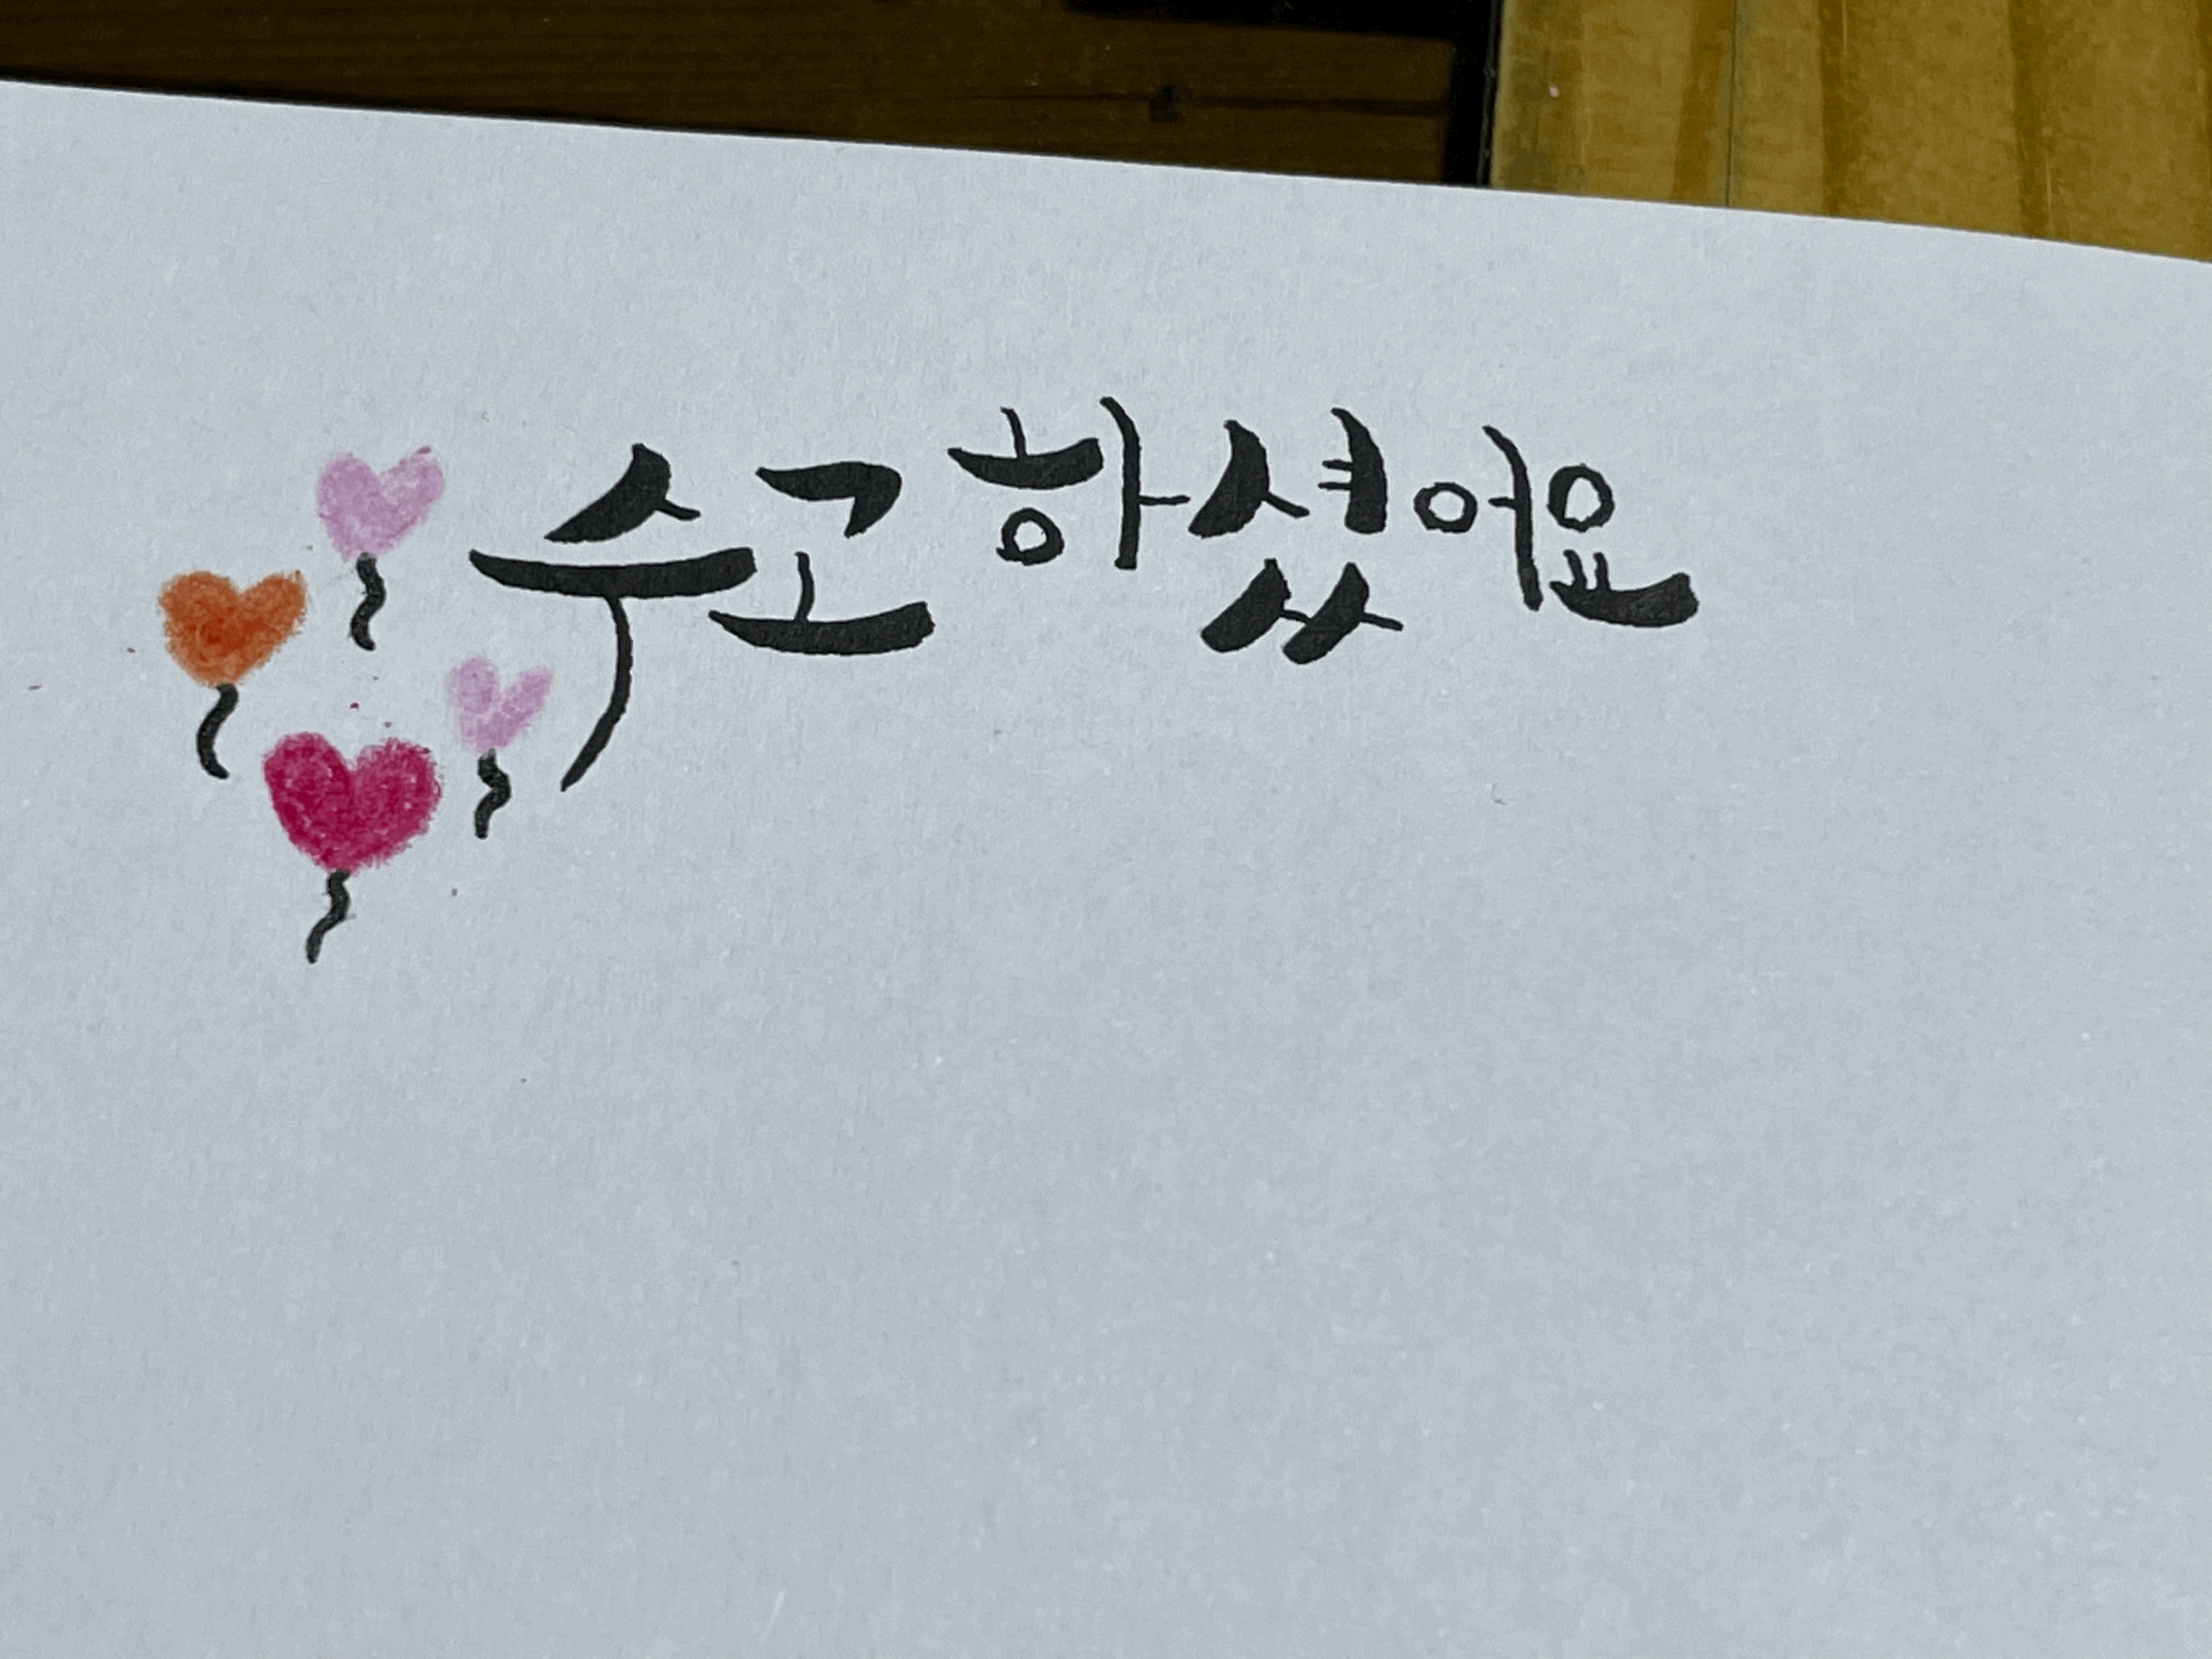 수고하셨어요